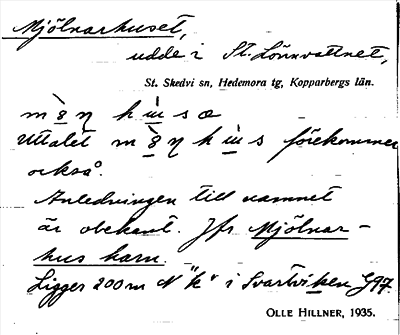 Mjölnarhuset,
udde i St. Lönnvattnet,
St. Skedvi sn, Hedemora tg, Kopparbergs län.
Uttalet förekommer
också.
Anledningen till namnet
är obekant. Jfr Mjölnar-
hus karn.
Ligger 200 m N "k" i Svartviken J97.
OLLE HILLNER, 1935.